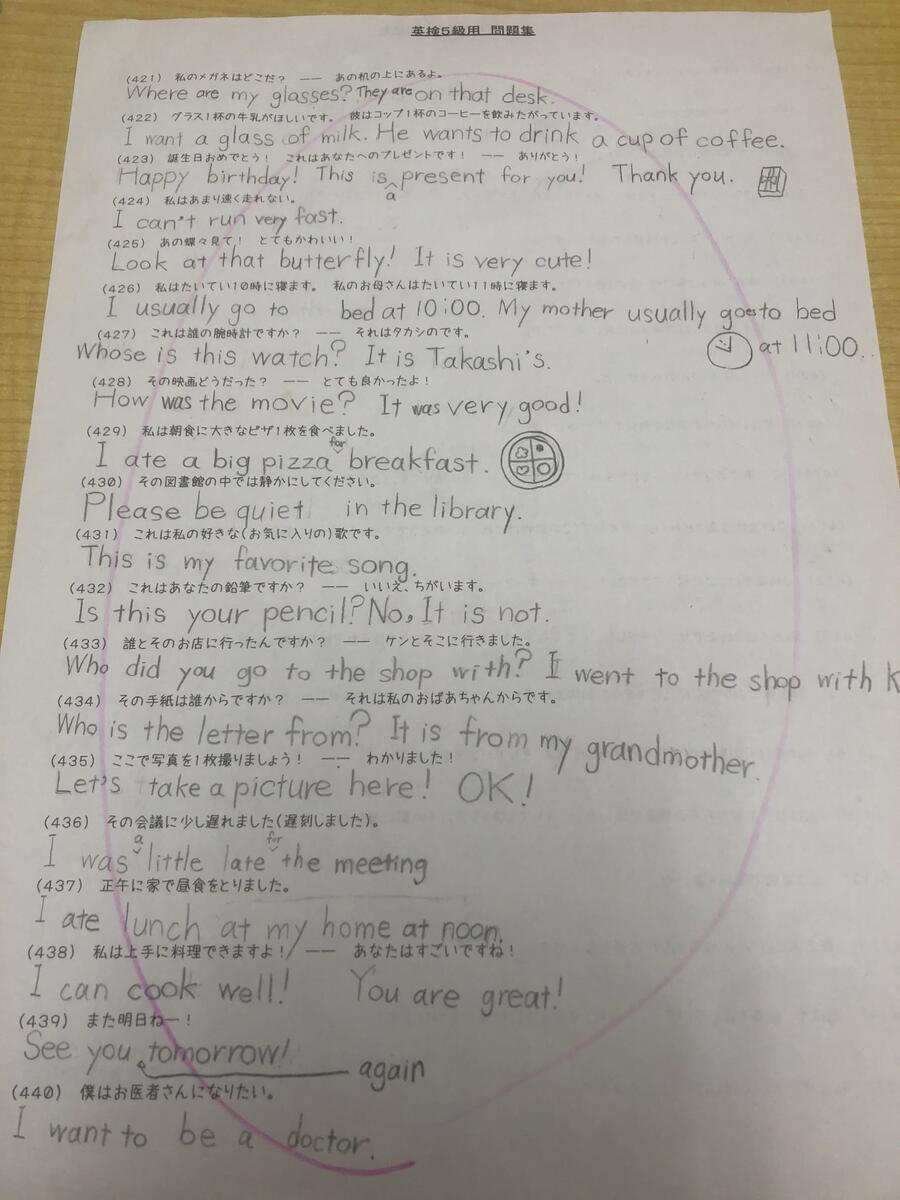 英検5級用 問題集
(421) 私のメガネはどこだ? ―― あの机の上にあるよ。
Where are my glasses? They are on that desk.
(422) グラス1杯の牛乳がほしいです。 彼はコップ1杯のコーヒーを飲みたがっています。
I want a glass of milk. He wants to drink a cup of coffee.
(423) 誕生日おめでとう! これはあなたへのプレゼントです! ―― ありがとう!
Happy birthday! This is a present for you! Thank you.
(424) 私はあまり速く走れない。
I can't run very fast.
(425) あの蝶々見て! とてもかわいい!
Look at that butterfly! It is very cute!
(426) 私はたいてい10時に寝ます。 私のお母さんはたいてい11時に寝ます。
I usually go to bed at 10:00. My mother usually goes to bed
at 11:00.
(427) これは誰の腕時計ですか? ―― それはタカシのです。
Whose is this watch? It is Takashi's.
(428) その映画どうだった? ―― とても良かったよ!
How was the movie? It was very good!
(429) 私は朝食に大きなピザ1枚を食べました。
I ate a big pizza for breakfast.
(430) その図書館の中では静かにしてください。
Please be quiet in the library.
(431) これは私の好きな(お気に入りの)歌です。
This is my favorite song.
(432) これはあなたの鉛筆ですか? ―― いいえ、ちがいます。
Is this your pencil? No, It is not.
(433) 誰とそのお店に行ったんですか? ―― ケンとそこに行きました。
Who did you go to the shop with? I went to the shop with K
(434) その手紙は誰からですか? ―― それは私のおばあちゃんからです。
Who is the letter from? It is from my grandmother.
(435) ここで写真を1枚撮りましょう! ―― わかりました!
Let's take a picture here! OK!
(436) その会議に少し遅れました(遅刻しました)。
I was a little late for the meeting
(437) 正午に家で昼食をとりました。
I ate lunch at my home at noon.
(438) 私は上手に料理できますよ! ―― あなたはすごいですね!
I can cook well! You are great!
(439) また明日ねー!
See you tomorrow! again
(440) 僕はお医者さんになりたい。
I want to be a doctor.